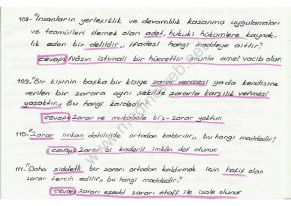 108- "İnsanların yerleşiklik ve devamlılık kazanmış uygulamaları
ve teamülleri demek olan adet, hukuki hükümlere kaynak-
lik eden bir delildir," ifadesi hangi maddeye aittir?
cevap: Nâsın istimali bir hüccettir anınla amel vacib olur.
109- "Bir kişinin başka bir kişiye zarar vermesi yada kendisine
verilen bir zarara aynı şekilde zararla karşılık vermesi
yasaktır," Bu hangi kaidedir?
cevap: Zarar ve mukabele bi'z-zarar yoktur.
110- "Zarar imkan dahilinde ortadan kaldırılır," bu hangi maddedir?
cevap: Zarar bi kaderil imkân def olunur
111- "Daha şiddetli bir zararı ortadan kaldırmak için hafif olan
zarar tercih edilir," bu hangi maddedir?
cevap: Zararı eşedd zararı ehaff ile izale olunur